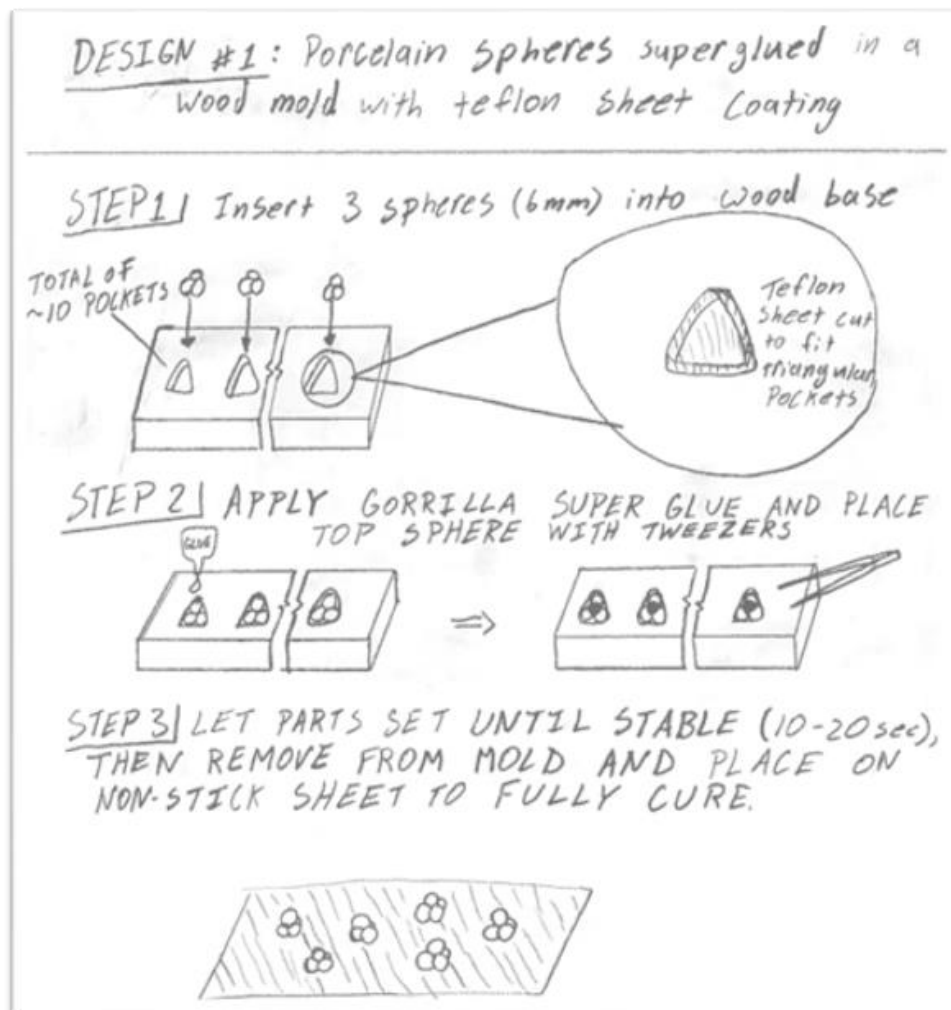 DESIGN #1: Porcelain Spheres superglued in a
Wood mold with teflon sheet Coating
STEP 1 Insert 3 spheres (6mm) into wood base
TOTAL OF
~10 POCKETS
Teflon
Sheet cut
to fit
triangular
Pockets
STEP 2 APPLY GORRILLA SUPER GLUE AND PLACE
TOP SPHERE WITH TWEEZERS
GLUE
STEP 3 LET PARTS SET UNTIL STABLE (10-20sec),
THEN REMOVE FROM MOLD AND PLACE ON
NON-STICK SHEET TO FULLY CURE.